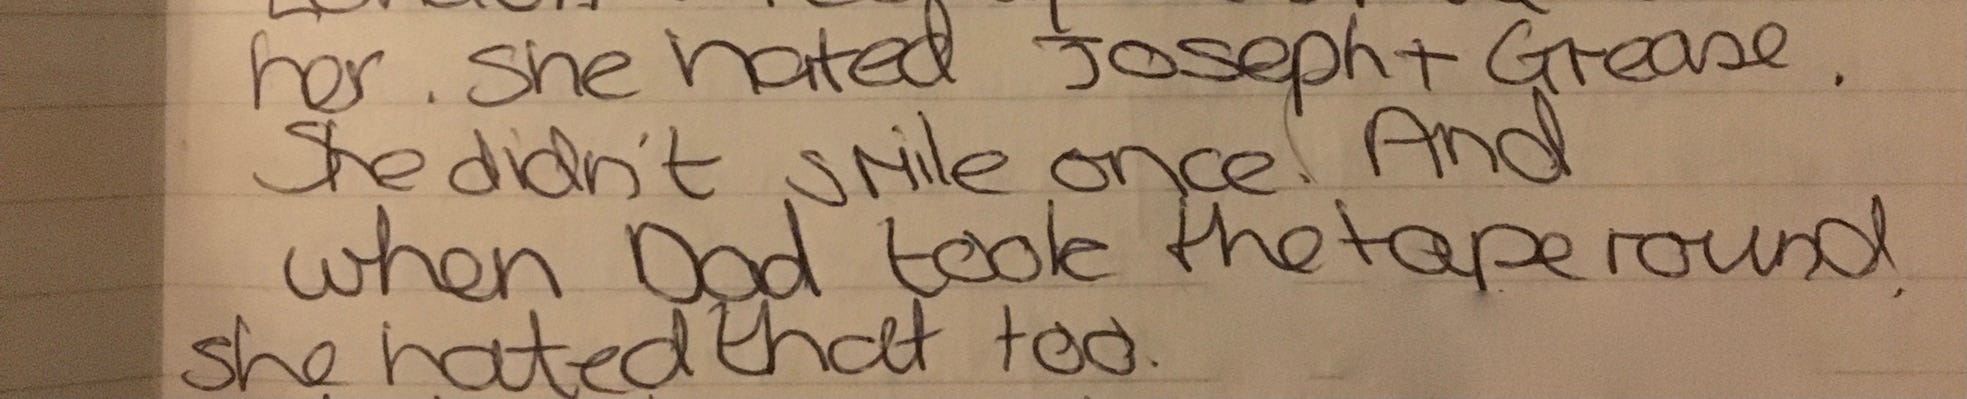 her. She hated Joseph + Grease.
She didn't smile once. And
when Dad took the tape round,
she hated that too.